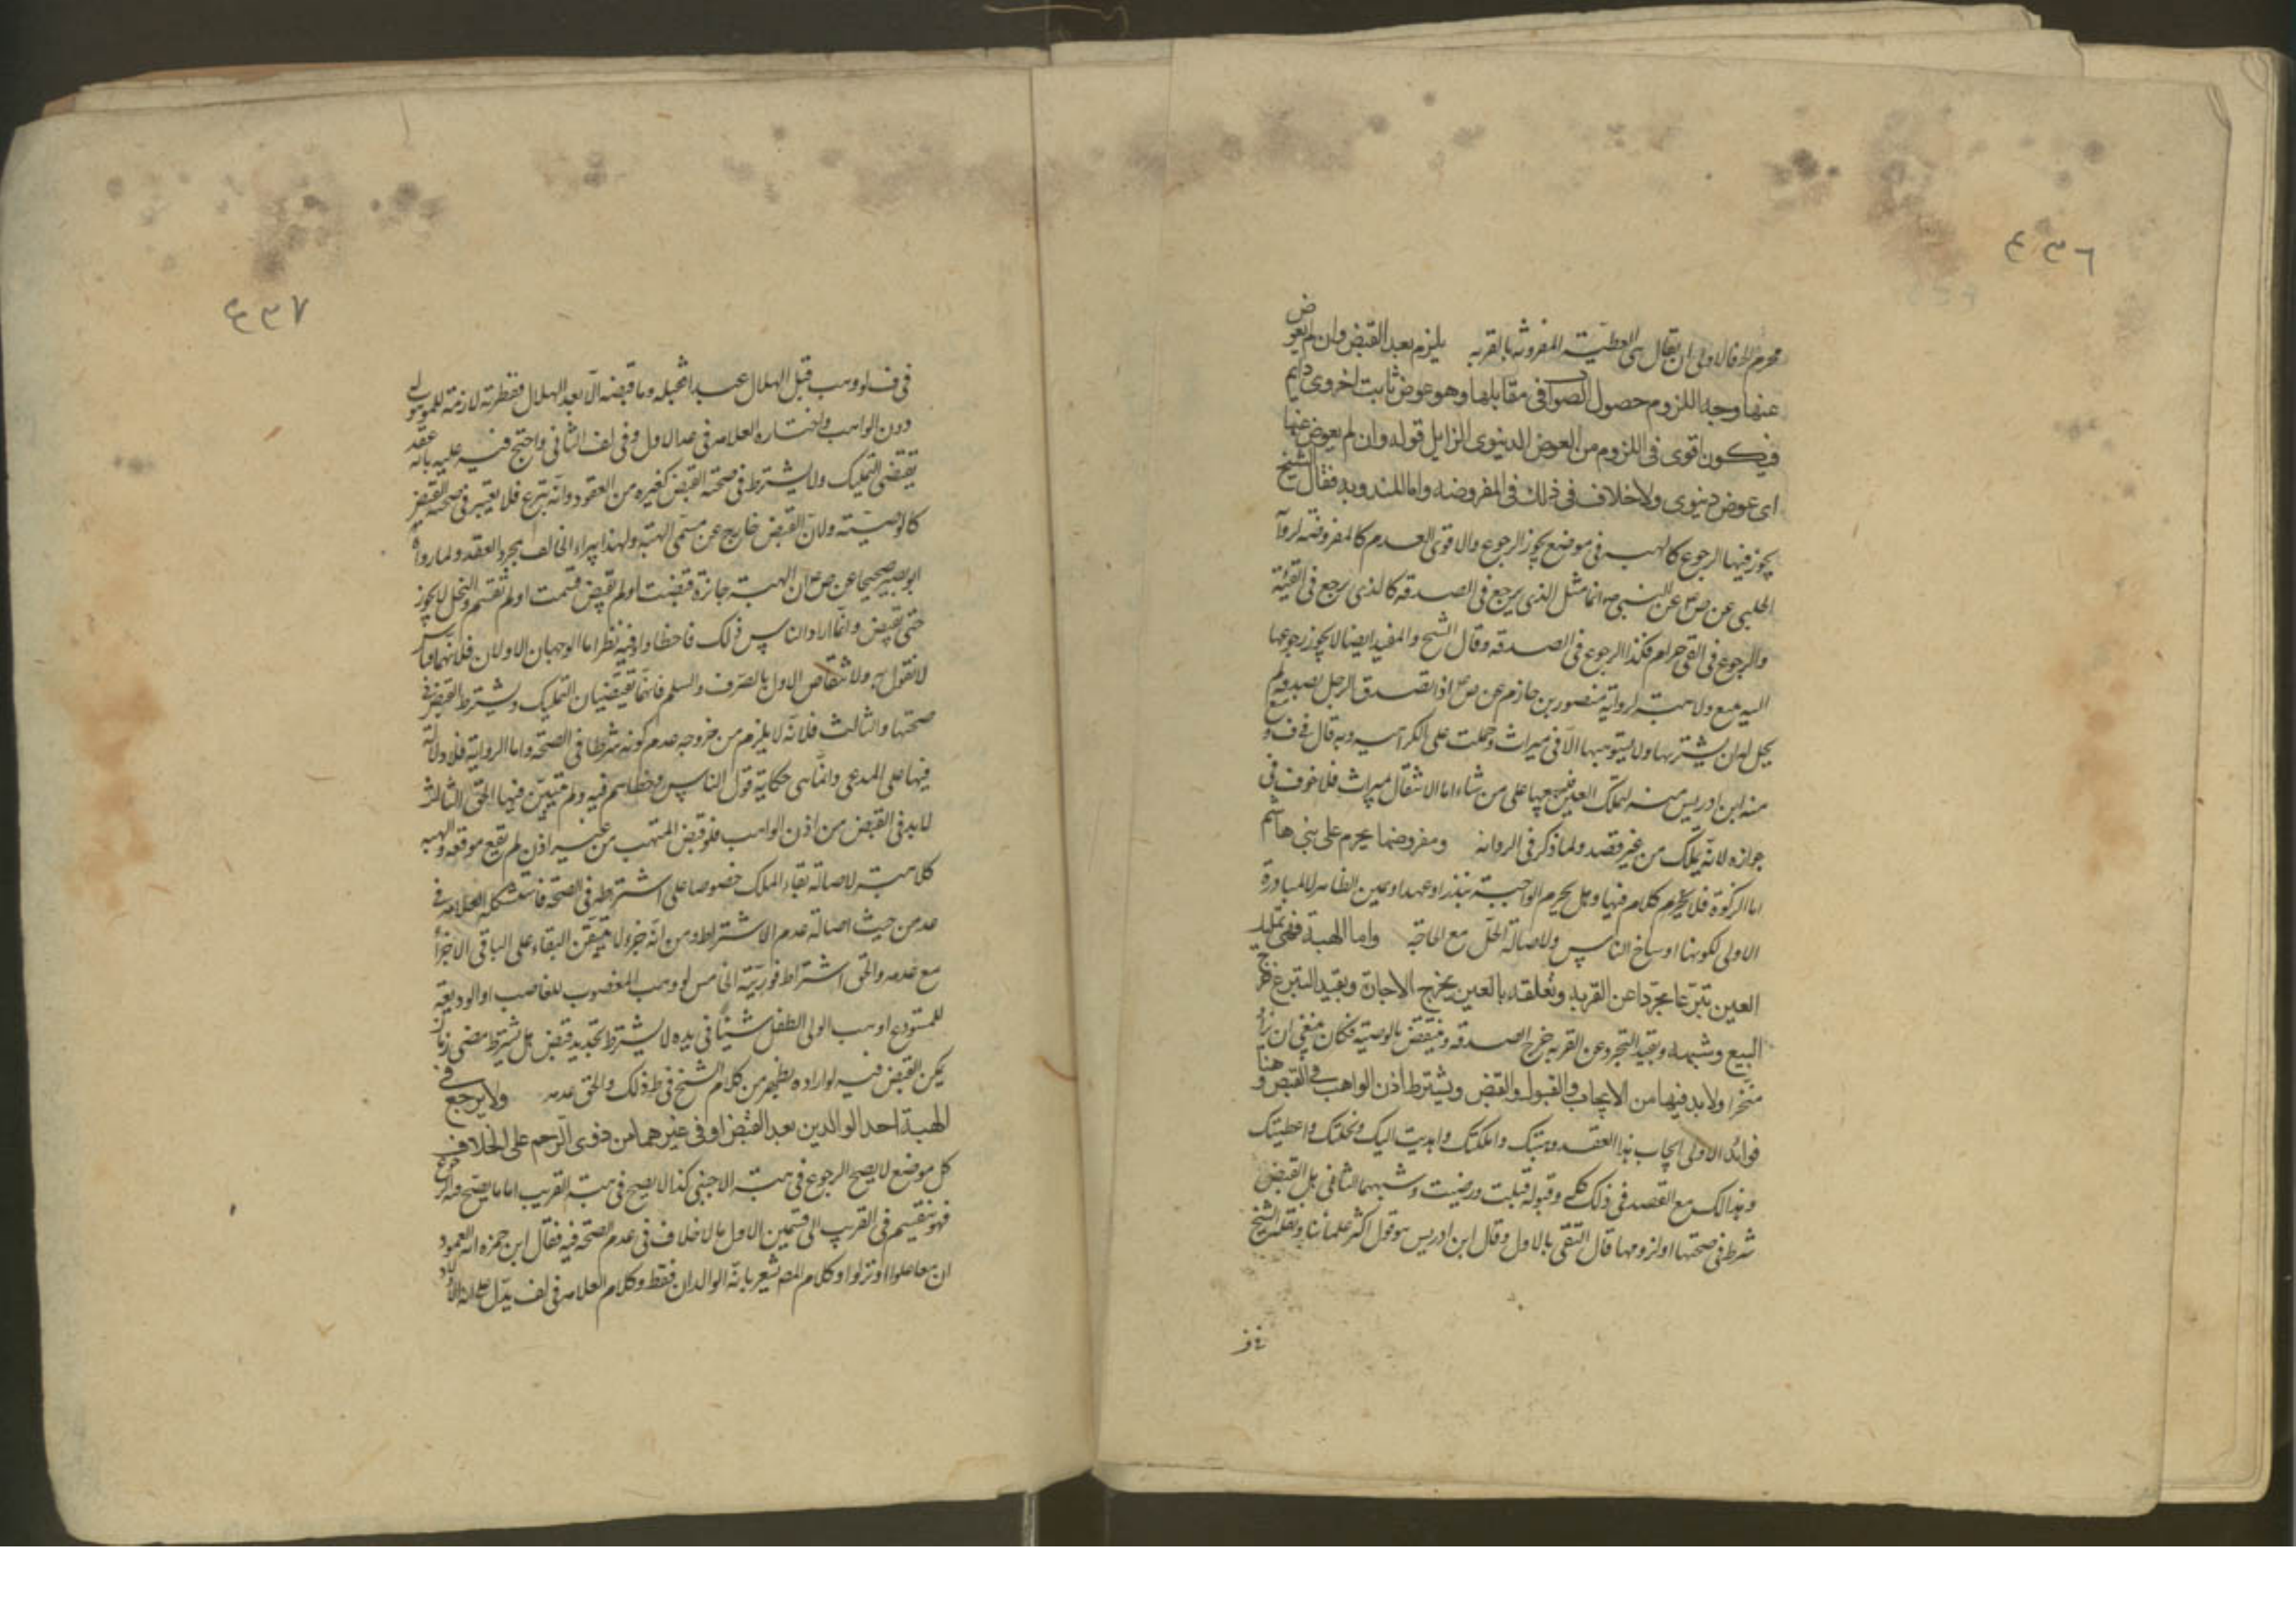 ٤٣٦
محرم له فالاولى ان يقال هى العطية المقرونة بالقربة يلزم بعد القبض وان لم يعوض
عنها وجه اللزوم حصول الثواب فى مقابلها وهو عوض ثابت اخروى دايم
فيكون اقوى فى اللزوم من العوض الدنيوى الزايل قوله وان لم يعوض عنها
اى عوض دنيوى ولا خلاف فى ذلك فى المفروضه واما المندوبه فقال الشيخ
يجوز فيها الرجوع كالهبه فى موضع يجوز الرجوع والاقوى العدم كالمفروضة لرواية
الحلبى عن ص ع عن النبى ص انما مثل الذى يرجع فى الصدقه كالذى يرجع فى القيئه
والرجوع فى القى حرام فكذا الرجوع فى الصدقه وقال الشيخ والمفيد ايضا لا يجوز رجوعها
اليه ببيع ولا هبة لرواية منصور بن حازم عن ص ع اذا تصدق الرجل بصدقه لم
يحل له ان يشتريها ولا يستوهبها الا فى ميراث وحملت على الكراهيه وبه قال فى ف و
منه ابن ادريس لتملك العين فيبيعها على من شاء اما الانتقال بميراث فلا خوف فى
جوازه لانه يملك من غير قصد ولما ذكر فى الرواية ومفروضها يحرم على بنى هاشم
اما الزكوة فلا كلام فيها وهل يحرم الواجبة بنذر او عهد او يمين الظاهر للمبادرة
الاولى لكونها اوساخ الناس ولاصالة الحل مع الحاجة واما الهبة فهى تمليك
العين تبرعا مجردا عن القربه وتعلقه بالعين يخرج الاجارة وبقيد التبرع خرج
البيع وشبهه وبقيد التجرد عن القربه خرج الصدقه وينتقض بالوصية فكان ينبغى ان يزاد
منجزا ولا بد فيها من الايجاب والقبول والقبض ويشترط اذن الواهب فى القبض وهنا
فوائد الاولى ايجاب هذا العقد وهبتك وملكتك واهديت اليك ونحلتك واعطيتك
وهذا لك مع القصد فى ذلك كله وقبوله قبلت ورضيت وشبههما الثانى هل القبض
شرط فى صحتها او لزومها قال التقى بالاول وقال ابن ادريس هو قول اكثر علمائنا ونقله الشيخ
فى ف
٤٣٧
فى ف لو وهب قبل الهلال عبدا فقبله وما قبضه الا بعد الهلال ففطرته لازمة للموهوب له
دون الواهب واختاره العلامه فى عد الاول وفى لف الثانى واحتج فيه عليه بانه عقد
يقتضى التمليك ولا يشترط فى صحته القبض كغيره من العقود وانه تبرع فلا يعتبر فى صحته القبض
كالوصية ولان القبض خارج عن مسمى الهبة ولهذا يبراء الحالف بمجرد العقد ولما رواه
ابو بصير صحيحا عن ص ع ان الهبة جائزة قبضت او لم تقبض قسمت او لم تقسم والنحل لا يجوز
حتى تقبض وانما اراد الناس ذلك فاخطاوا وفيه نظر اما الوجهان الاولان فلانهما قياس
لا نقول به ولانتقاض الاول بالصرف والسلم فانهما يقتضيان التمليك ويشترط القبض فى
صحتها والثالث فلانه لا يلزم من خروجه عدم كونه شرطا فى الصحة واما الرواية فلا دلالة
فيها على المدعى وانما هى حكاية قول الناس وخطاهم فيه ولم يتبين فيها الحق الثالث
لا بد فى القبض من اذن الواهب فلو قبض المتهب من غير اذن لم يقع موقعه والهبه
كلا هبة لاصالة بقاء الملك خصوصا على اشتراطه فى الصحة فاستشكله العلامه فى
عد من حيث اصالة عدم الاشتراط ومن انه جزء لا يتيقن البقاء على الباقى الاجزأ
مع عدمه والحق اشتراط فوريته الخامس لو وهب المغصوب للغاصب او الوديعة
للمستودع او وهب الولى الطفل شيئا فى يده لا يشترط تجديد قبض بل يشترط مضى زمان
يمكن القبض فيه لو اراده يظهر من كلام الشيخ فى ط ذلك والحق عدمه ولا يرجع فى
الهبة احد الوالدين بعد القبض او فى غيرهما من ذوى الرحم على الخلاف
كل موضع لا يصح الرجوع فى هبة الاجنبى كذا لا يصح فى هبة القريب اما ما يصح فيه الرجوع
فهو ينقسم فى القريب الى قسمين الاول ما لا خلاف فى عدم الصحة فيه فقال ابن حمزه انه العمود
ان علوا او نزلوا وكلام المص يشعر بانه الوالدان فقط وكلام العلامه فى لف يدل على انه الاولاد